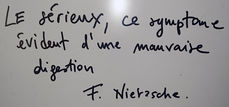 LE sérieux, ce symptome
évident d'une mauvaise
digestion
F. Nietzsche.